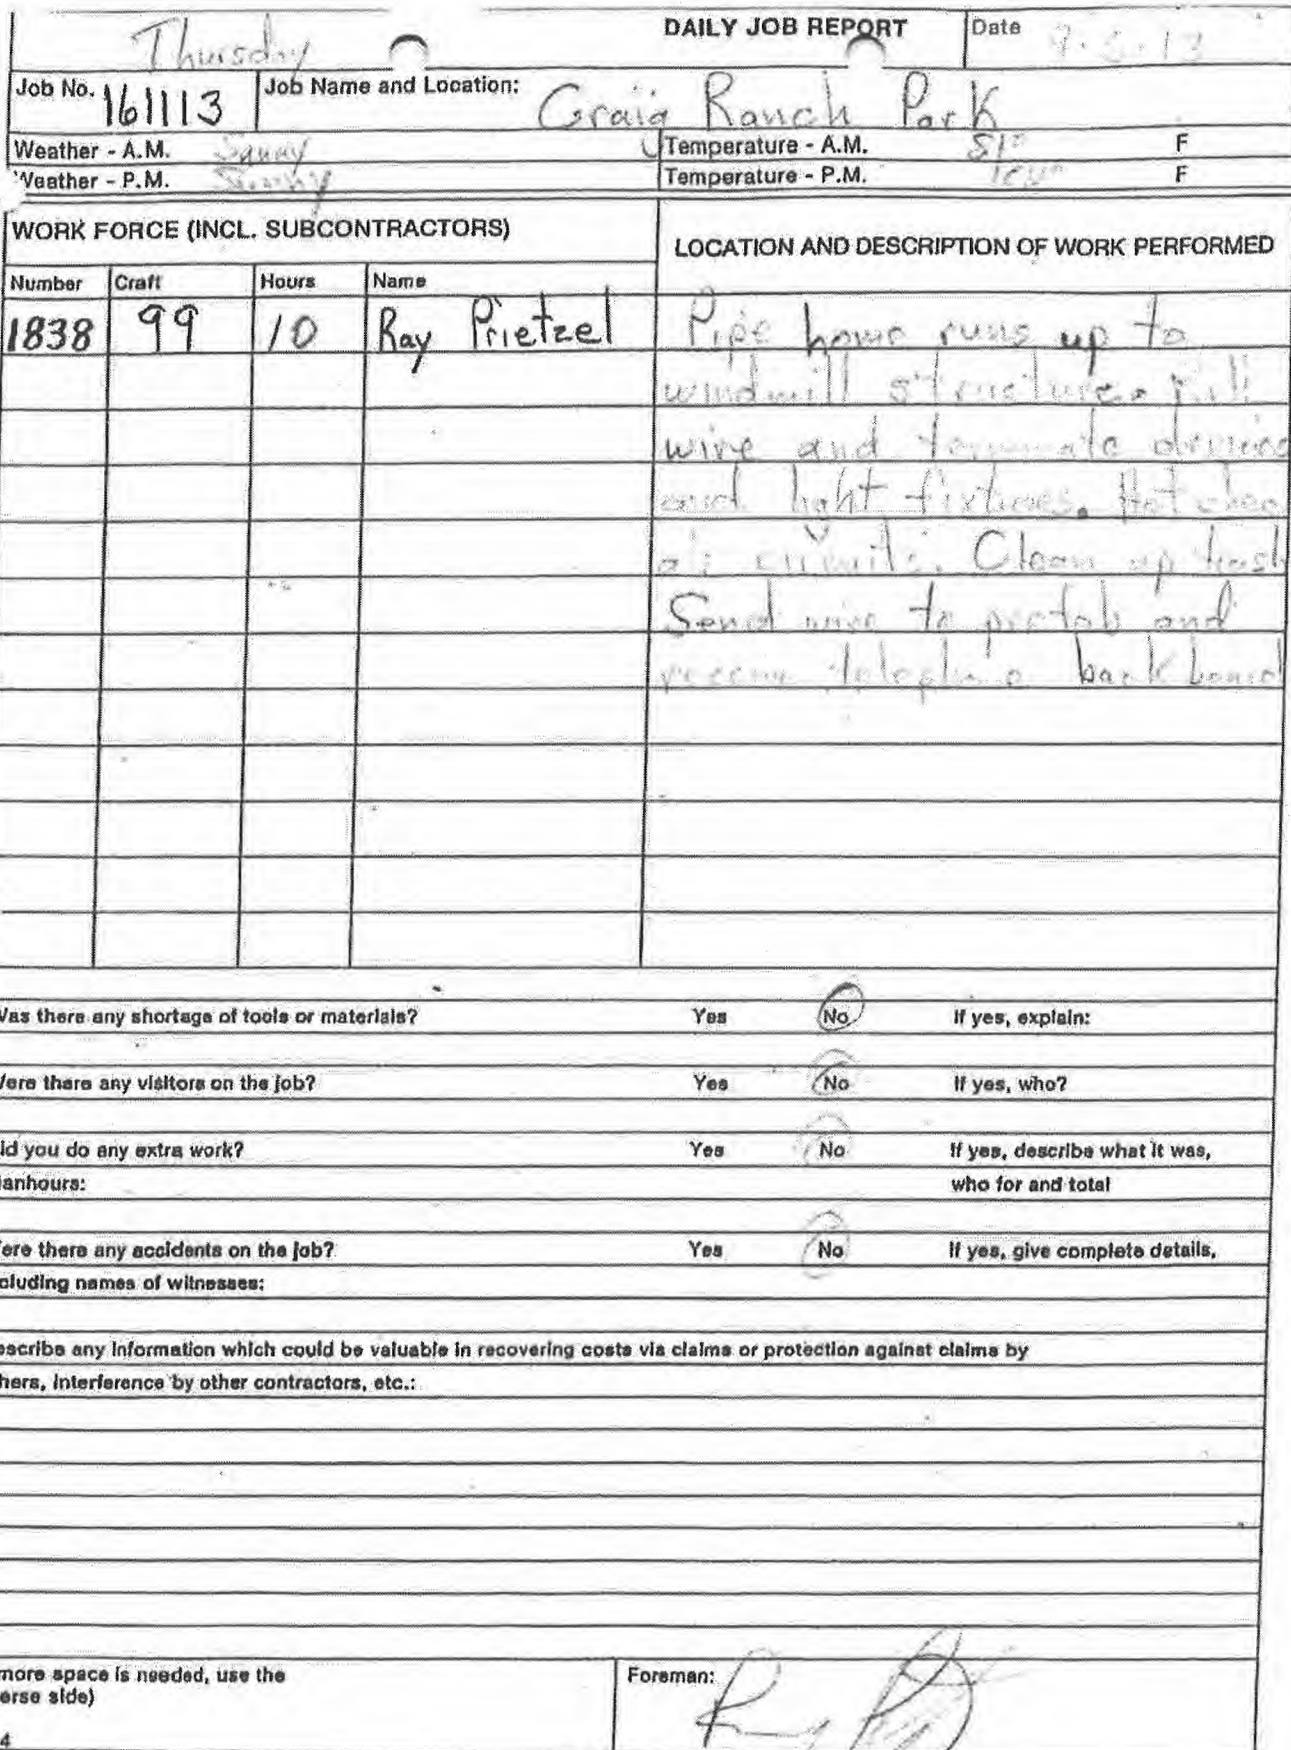 DAILY JOB REPORT
Date 9-5-13
Thursday
Job No. 161113
Job Name and Location: Craig Ranch Park
Weather - A.M. Sunny
Temperature - A.M. 81° F
Weather - P.M. Sunny
Temperature - P.M. F
WORK FORCE (INCL. SUBCONTRACTORS)
LOCATION AND DESCRIPTION OF WORK PERFORMED
Number Craft Hours Name
1838 99 10 Ray Prietzel
Pipe home runs up to
windmill structure. pull
wire and terminate devices
and light fixtures. Hot chec
all circuits. Clean up trash
Send wire to prefab and
receive telephone backboard
Was there any shortage of tools or materials? Yes No If yes, explain:
Were there any visitors on the job? Yes No If yes, who?
id you do any extra work? Yes No If yes, describe what it was,
anhours: who for and total
ere there any accidents on the job? Yes No If yes, give complete details,
cluding names of witnesses:
escribe any information which could be valuable in recovering costs via claims or protection against claims by
hers, interference by other contractors, etc.:
more space is needed, use the
erse side)
Foreman:
4